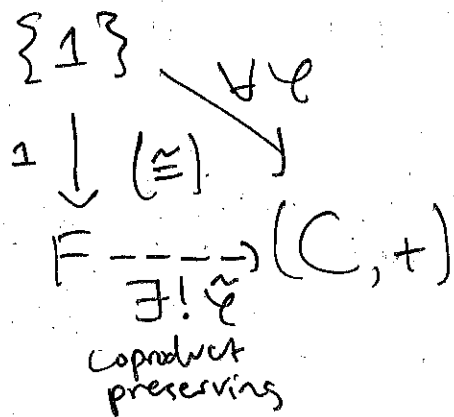 {1} ∀φ
1 (≅)
F ----> (C,+)
∃! φ̃
coproduct
preserving